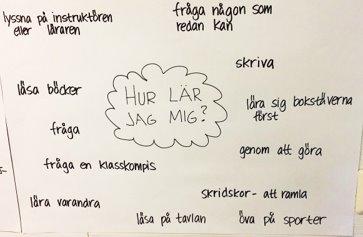 lyssna på instruktören
eller läraren
fråga någon som
redan kan
skriva
läsa böcker
HUR LÄR
JAG MIG?
lära sig bokstäverna
först
fråga
genom att göra
fråga en klasskompis
skridskor - att ramla
lära varandra
läsa på tavlan
öva på sporter